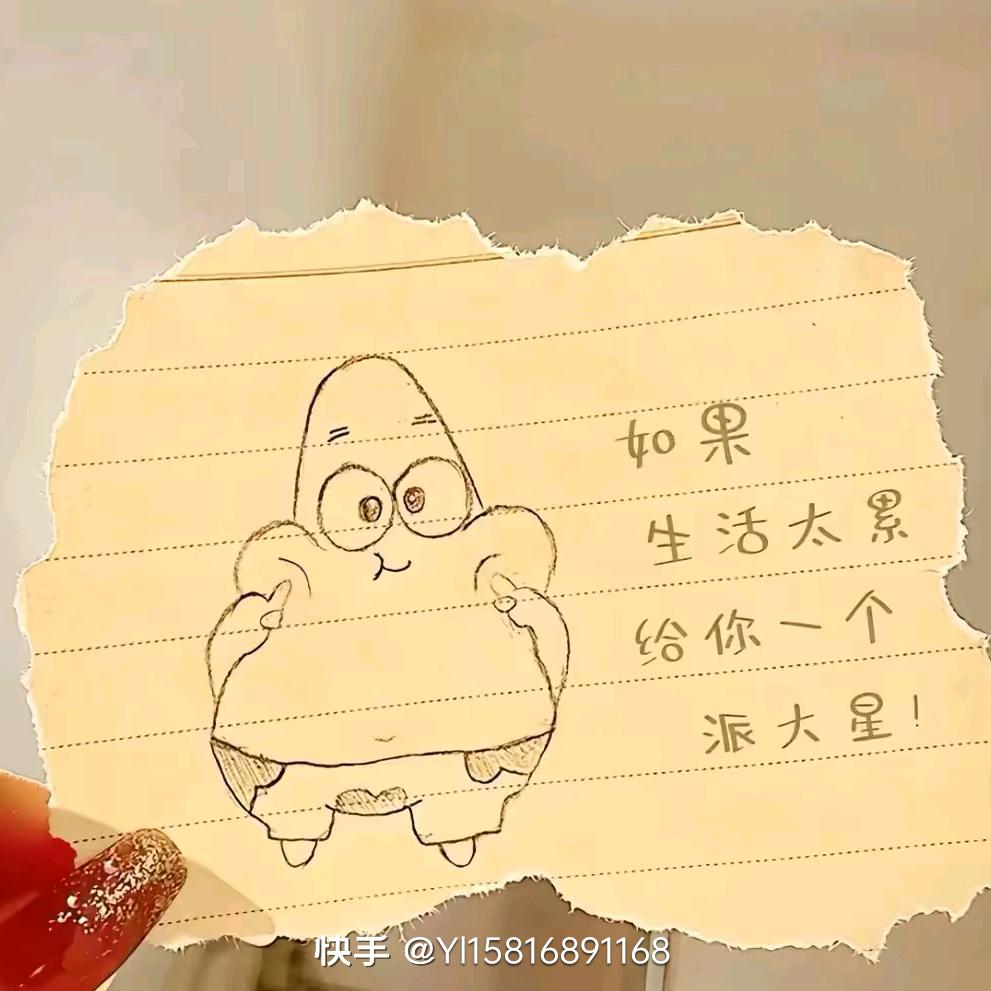 如果
生活太累
给你一个
派大星！
快手 @Yl15816891168